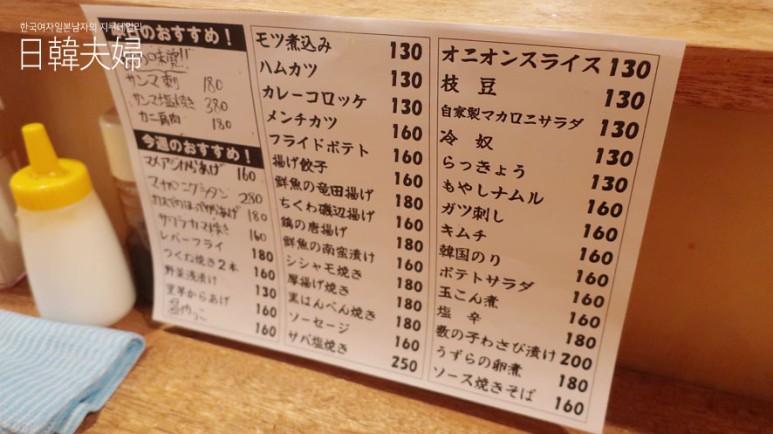 한국여자일본남자의
日韓夫婦
のおすすめ！
サンマ刺 180
サンマ塩焼き 380
カニ肩肉 180
今週のおすすめ！
マメアジからあげ 160
280
180
サワラカマ焼き 160
レバーフライ 180
つくね焼き２本 160
野菜浅漬け 130
里芋からあげ 160
160
モツ煮込み 130
ハムカツ 130
カレーコロッケ 130
メンチカツ 160
フライドポテト 160
揚げ餃子 160
鮮魚の竜田揚げ 160
ちくわ磯辺揚げ 180
鶏の唐揚げ 180
鮮魚の南蛮漬け 180
シシャモ焼き 160
厚揚げ焼き 180
黒はんぺん焼き 180
ソーセージ 160
サバ塩焼き 250
オニオンスライス 130
枝豆 130
自家製マカロニサラダ 130
冷奴 130
らっきょう 130
もやしナムル 160
ガツ刺し 160
キムチ 160
韓国のり 160
ポテトサラダ 160
玉こん煮 160
塩辛 180
数の子わさび漬け 200
うずらの卵煮 180
ソース焼きそば 160